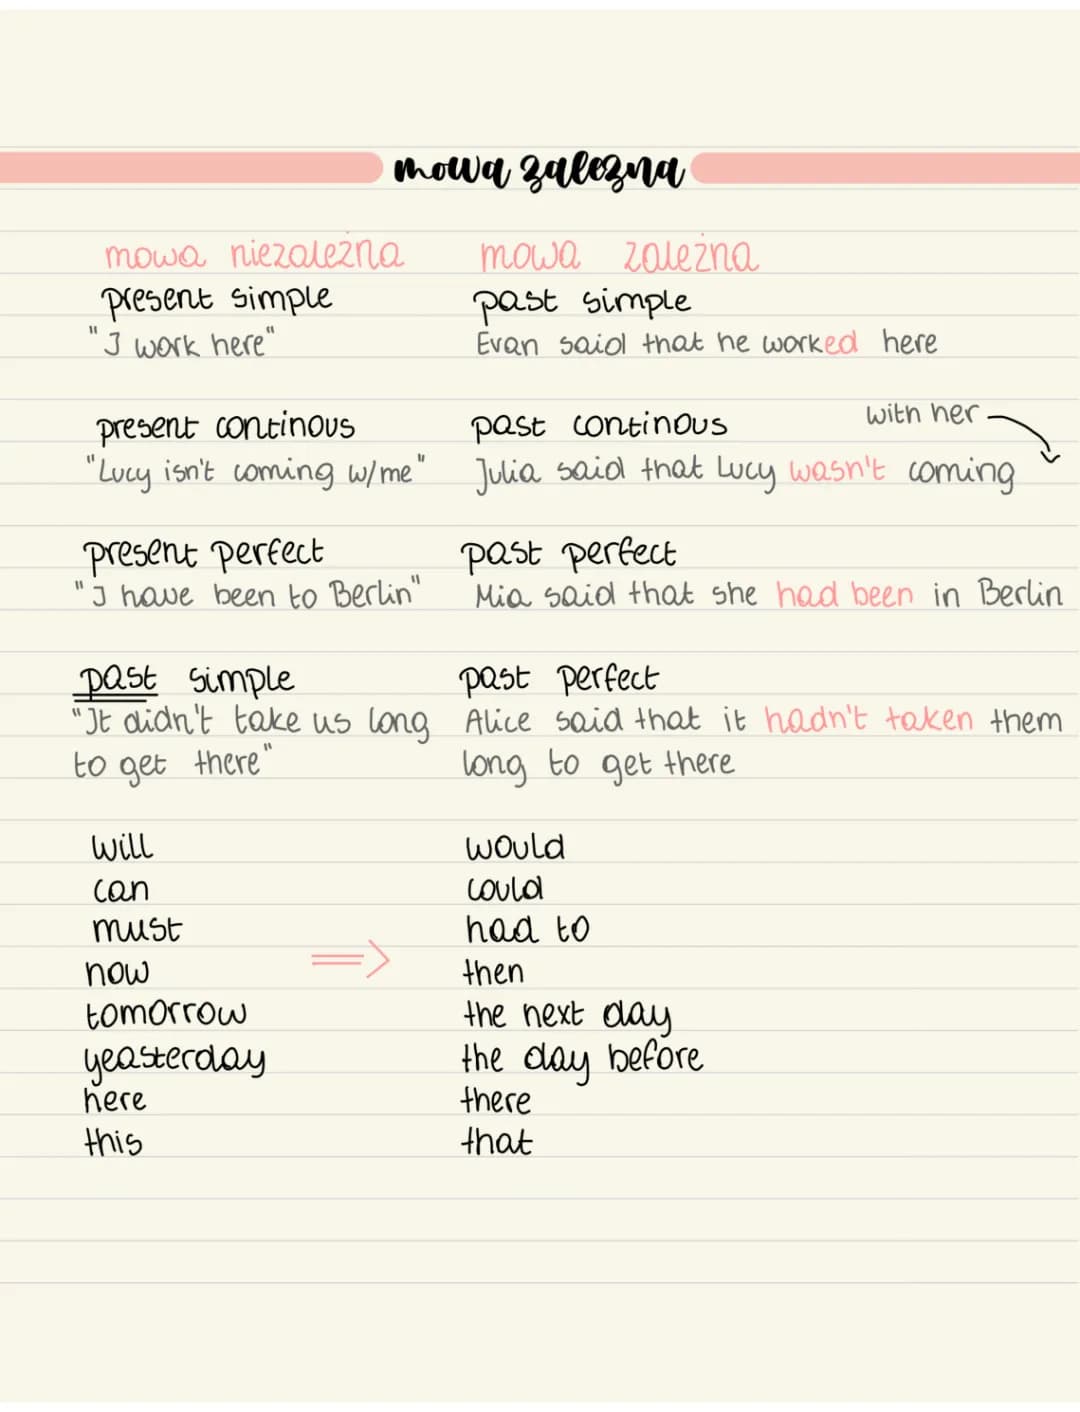 mowa zalezna
mowa niezależna mowa zależna
present simple past simple
"I work here" Evan said that he worked here
present continous past continous with her
"Lucy isn't coming w/me" Julia said that Lucy wasn't coming
present perfect past perfect
"I have been to Berlin" Mia said that she had been in Berlin
past simple past perfect
"It didn't take us long Alice said that it hadn't taken them
to get there" long to get there
will would
can could
must had to
now then
tomorrow the next day
yeasterday the day before
here there
this that